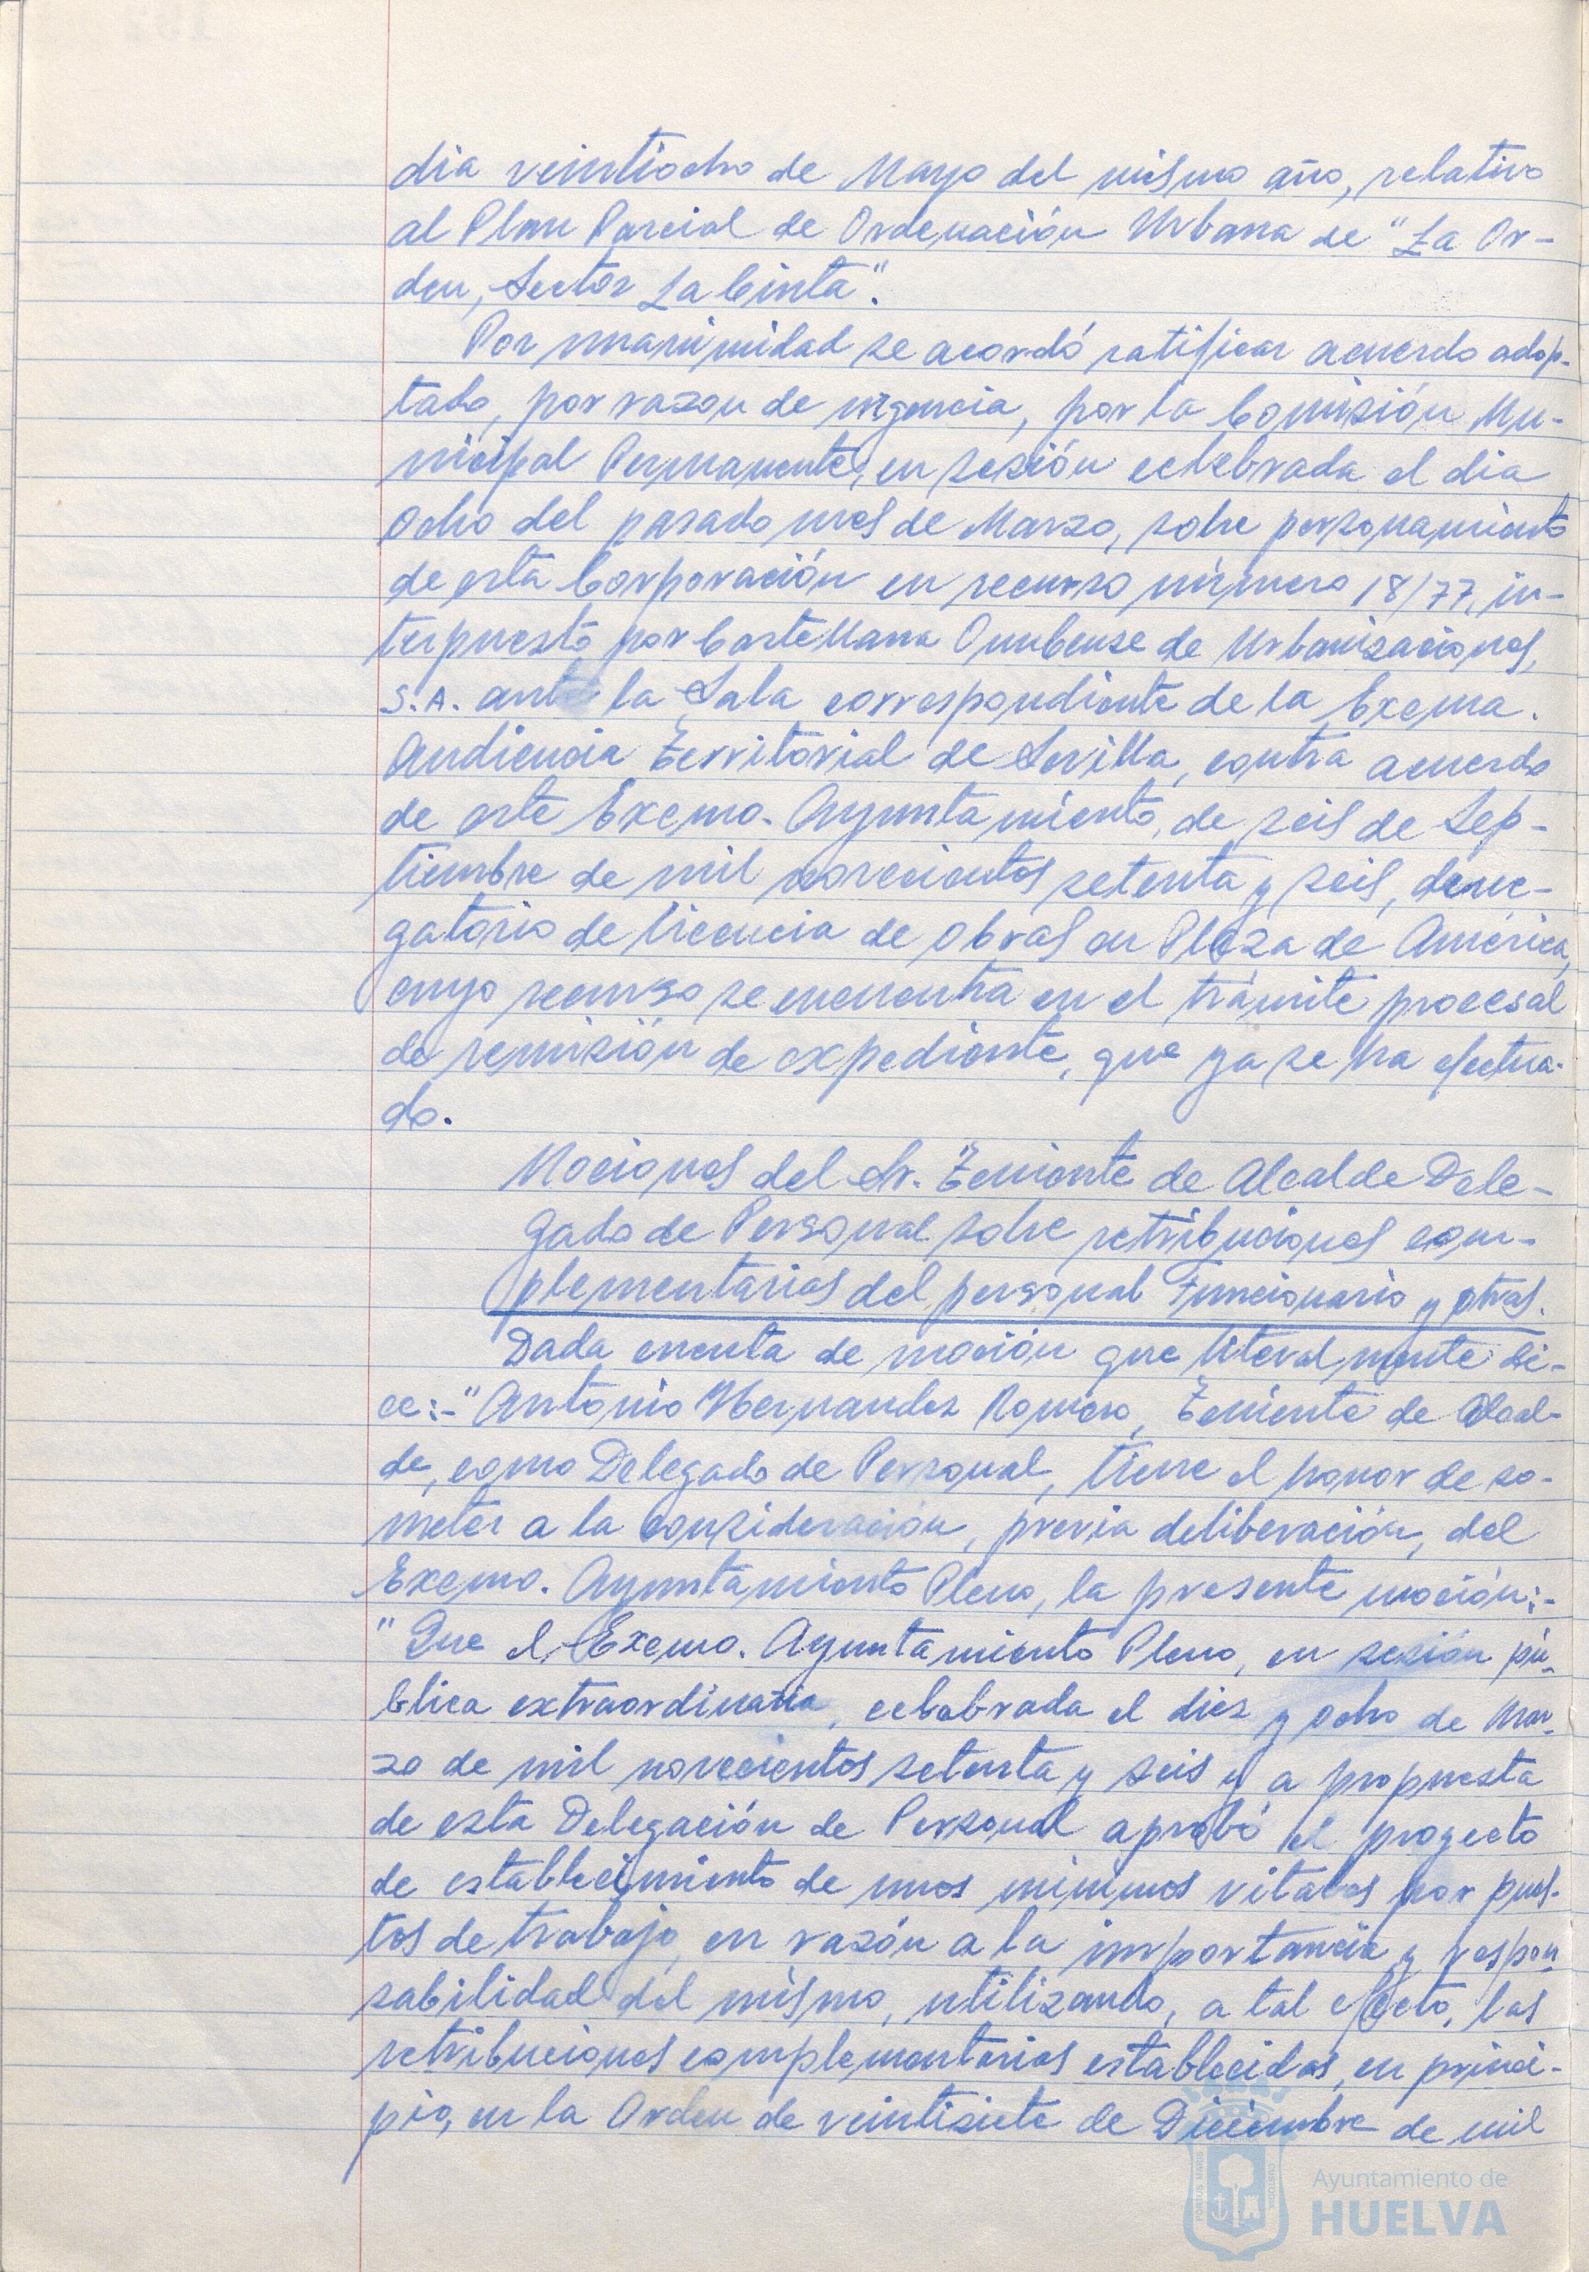 dia veintiocho de Mayo del mismo año, relativo
al Plan Parcial de Ordenación Urbana de "La Or-
den, Sector La Cinta".
Por unanimidad se acordó ratificar acuerdo adop-
tado, por razon de urgencia, por la Comisión Mu-
nicipal Permanente, en sesión celebrada el dia
ocho del pasado mes de Marzo, sobre personamiento
de esta Corporación en recurso número 18/77, in-
terpuesto por Castellana Onubense de Urbanizaciones,
S.A. ante la Sala correspondiente de la Excma.
Audiencia Territorial de Sevilla, contra acuerdo
de este Excmo. Ayuntamiento, de seis de Sep-
tiembre de mil novecientos setenta y seis, dene-
gatorio de licencia de obras en Plaza de América,
cuyo recurso se encuentra en el trámite procesal
de remisión de expediente, que ya se ha efectua-
do.
Mociones del Sr. Teniente de Alcalde Dele-
gado de Personal sobre retribuciones com-
plementarias del personal Funcionario y otras.
Dada cuenta de moción que literalmente di-
ce:-"Antonio Hernandez Romero, Teniente de Alcal-
de, como Delegado de Personal, tiene el honor de so-
meter a la consideración, previa deliberación, del
Excmo. Ayuntamiento Pleno, la presente moción:-
"Que el Excmo. Ayuntamiento Pleno, en sesión pú-
blica extraordinaria, celebrada el diez y ocho de Mar-
zo de mil novecientos setenta y seis y a propuesta
de esta Delegación de Personal aprobó el proyecto
de establecimiento de unos minimos vitales por pues-
tos de trabajo, en razón a la importancia y respon
sabilidad del mismo, utilizando, a tal efecto, las
retribuciones complementarias establecidas, en princi-
pio, en la Orden de veintisiete de Diciembre de mil
Ayuntamiento de
HUELVA